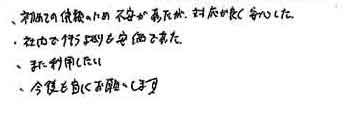 、初めての依頼のため不安があたが、対応が良く安心した。
・社内で行うよりも安価で来た。
・また利用したい
・今後も宜しくお願いします